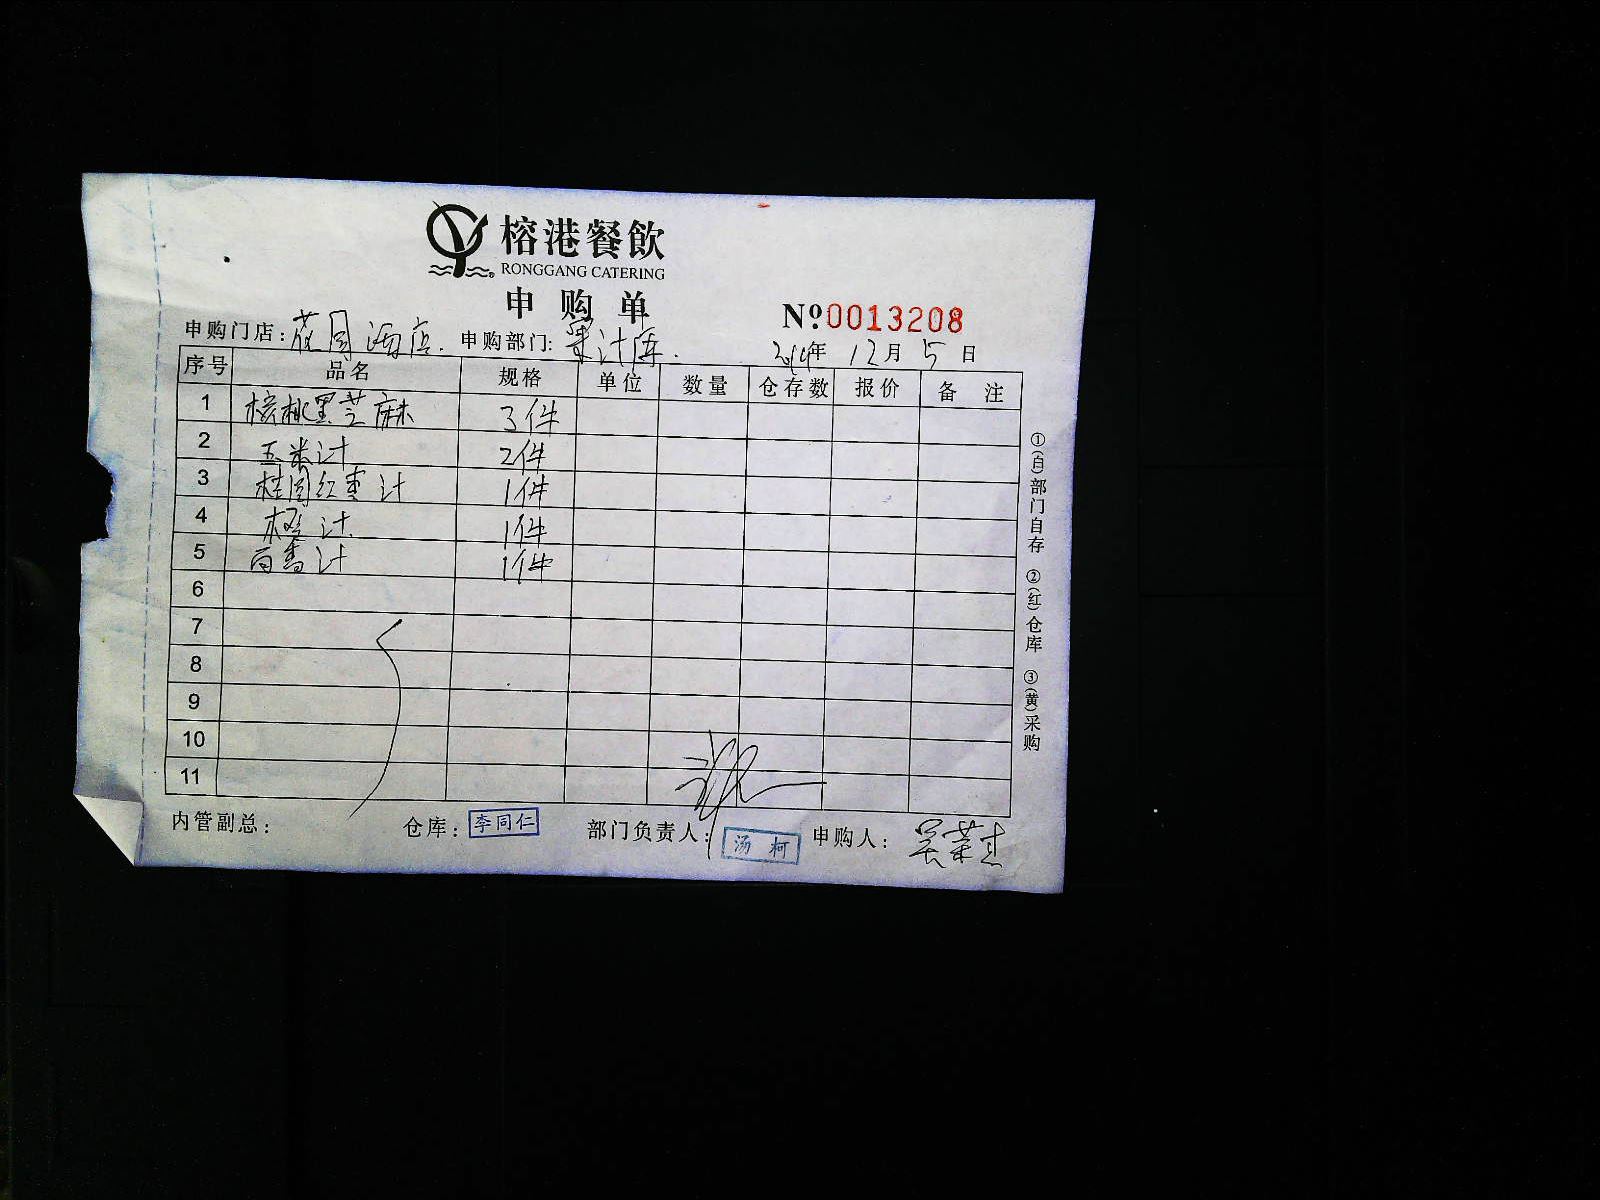 榕港餐飲
RONGGANG CATERING
申购单
№0013208
申购门店: 花园酒店. 申购部门: 果汁库. 2014年 12月 5日
序号 品名 规格 单位 数量 仓存数 报价 备注
1 核桃黑芝麻 3件
2 玉米汁 2件
3 桂圆红枣汁 1件
4 橙汁 1件
5 百香汁 1件
6
7
8
9
10
11
①(白)部门自存 ②(红)仓库 ③(黄)采购
内管副总: 仓库: 李同仁 部门负责人: 汤柯 申购人: 吴荣杰